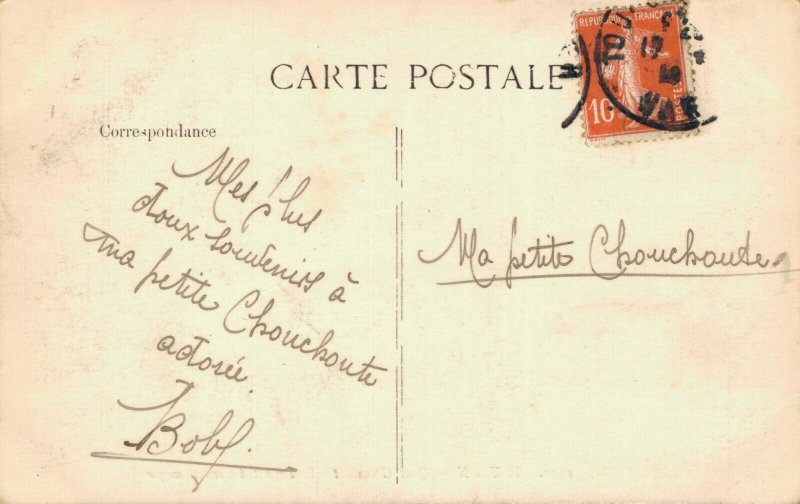 CARTE POSTALE
RÉPUBLIQUE FRANÇAISE
10
POSTES
TOUL
VAR
Correspondance
Mes plus
doux souvenirs à
ma petite Chouchoute
adorée.
Bob.
Ma petite Chouchoute